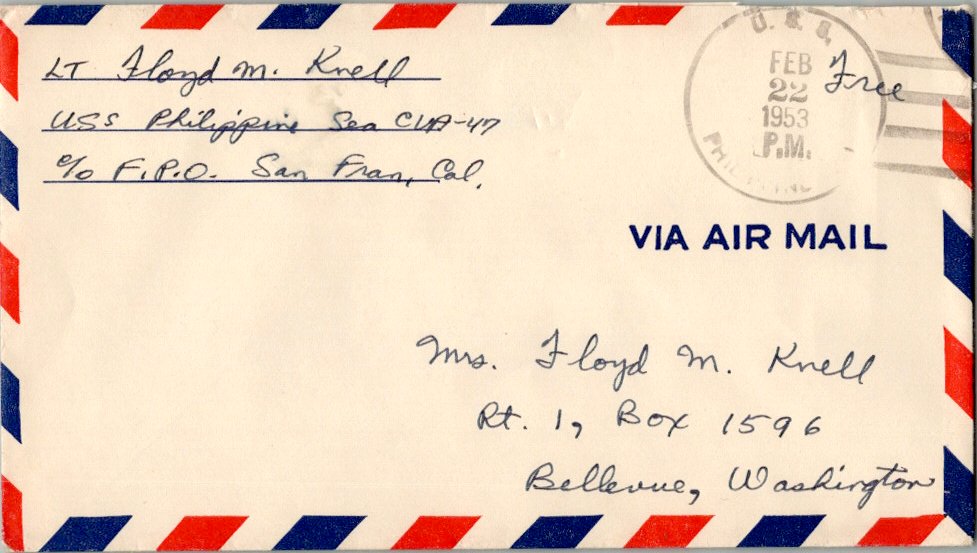 LT Floyd M. Knell
USS Philippine Sea CVA-47
c/o F.P.O. San Fran, Cal.
U. S. S.
FEB
22
1953
P.M.
Free
VIA AIR MAIL
Mrs. Floyd M. Knell
Rt. 1, Box 1596
Bellevue, Washington